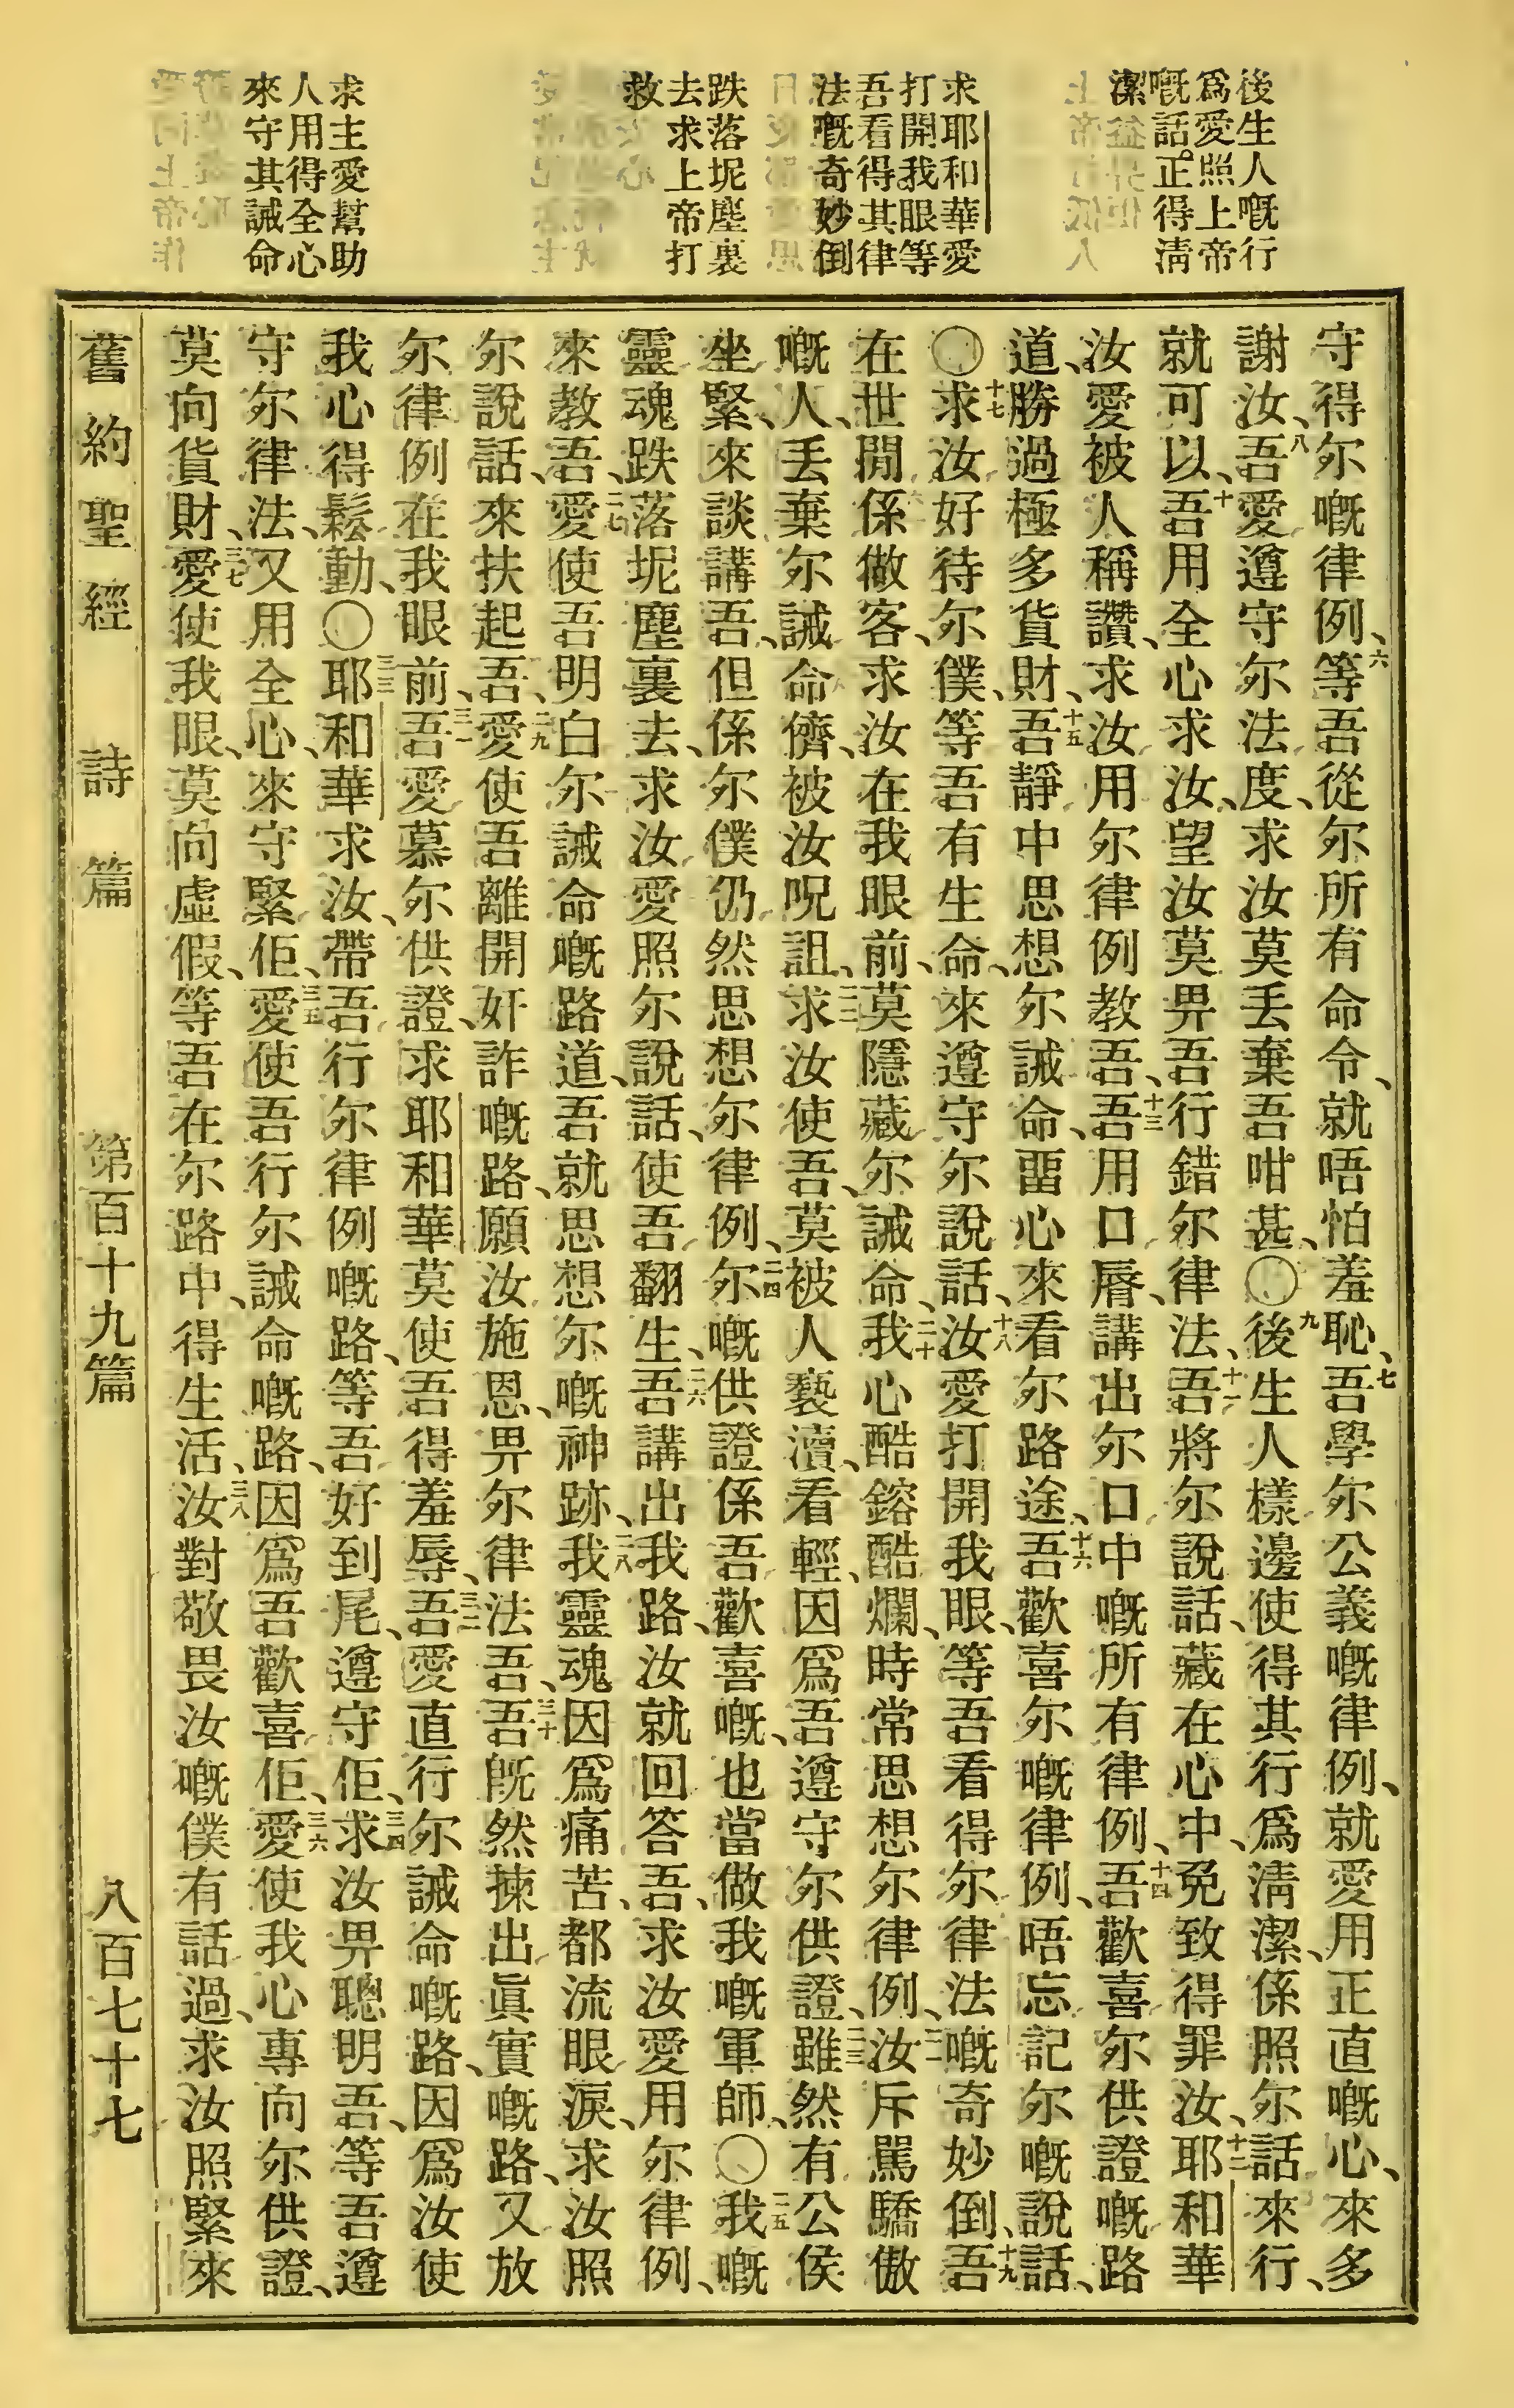 後生人嘅行
爲愛照上帝
嘅話。正得淸
潔
求耶和華愛
打開我眼等
吾看得其律
法嘅奇妙倒
跌落坭塵裏
去求上帝打
救
求主愛幫助
人用得全心
來守其誡命
守得尔嘅律例、六等吾從尔所有命令、就唔怕羞恥、七吾學尔公義嘅律例、就愛用正直嘅心、來多
謝汝、八吾愛遵守尔法度、求汝莫丟棄吾咁甚、〇九後生人樣邊使得其行爲淸潔、係照尔話來行、
就可以、十吾用全心求汝、望汝莫畀吾行錯尔律法、十一吾將尔說話、藏在心中、免致得罪汝、十二耶和華
汝愛被人稱讚、求汝用尔律例教吾、十三吾用口脣、講出尔口中嘅所有律例、十四吾歡喜尔供證嘅路
道、勝過極多貨財、十五吾靜中思想尔誡命、畱心來看尔路途、十六吾歡喜尔嘅律例、唔忘記尔嘅說話、
〇十七求汝好待尔僕、等吾有生命、來遵守尔說話、十八汝愛打開我眼、等吾看得尔律法嘅奇妙倒、十九吾
在世間係做客、求汝在我眼前、莫隱藏尔誡命、二十我心酷鎔酷爛、時常思想尔律例、二一汝斥罵驕傲
嘅人、丟棄尔誡命儕、被汝呪詛、二二求汝使吾、莫被人褻瀆、看輕、因爲吾遵守尔供證、二三雖然有公侯
坐緊、來談講吾、但係尔僕仍然思想尔律例、二四尔嘅供證係吾歡喜嘅、也當做我嘅軍師、〇二五我嘅
靈魂跌落坭塵裏去、求汝愛照尔說話、使吾翻生、二六吾講出我路、汝就回答吾、求汝愛用尔律例、
來教吾、二七愛使吾明白尔誡命嘅路道、吾就思想尔嘅神跡、二八我靈魂因爲痛苦、都流眼淚、求汝照
尔說話、來扶起吾、二九愛使吾離開奸詐嘅路、願汝施恩、畀尔律法吾、三十吾旣然揀出眞實嘅路、又放
尔律例在我眼前、三一吾愛慕尔供證、求耶和華莫使吾得羞辱、三二吾愛直行尔誡命嘅路、因爲汝使
我心得鬆動、〇三三耶和華求汝、帶吾行尔律例嘅路、等吾好到尾、遵守佢、三四求汝畀聰明吾、等吾遵
守尔律法、又用全心、來守緊佢、三五愛使吾行尔誡命嘅路、因爲吾歡喜佢、三六愛使我心專向尔供證、
莫向貨財、三七愛使我眼、莫向虛假、等吾在尔路中、得生活、三八汝對敬畏汝嘅僕有話過、求汝照緊來
舊約聖經　詩篇　第百十九篇　八百七十七